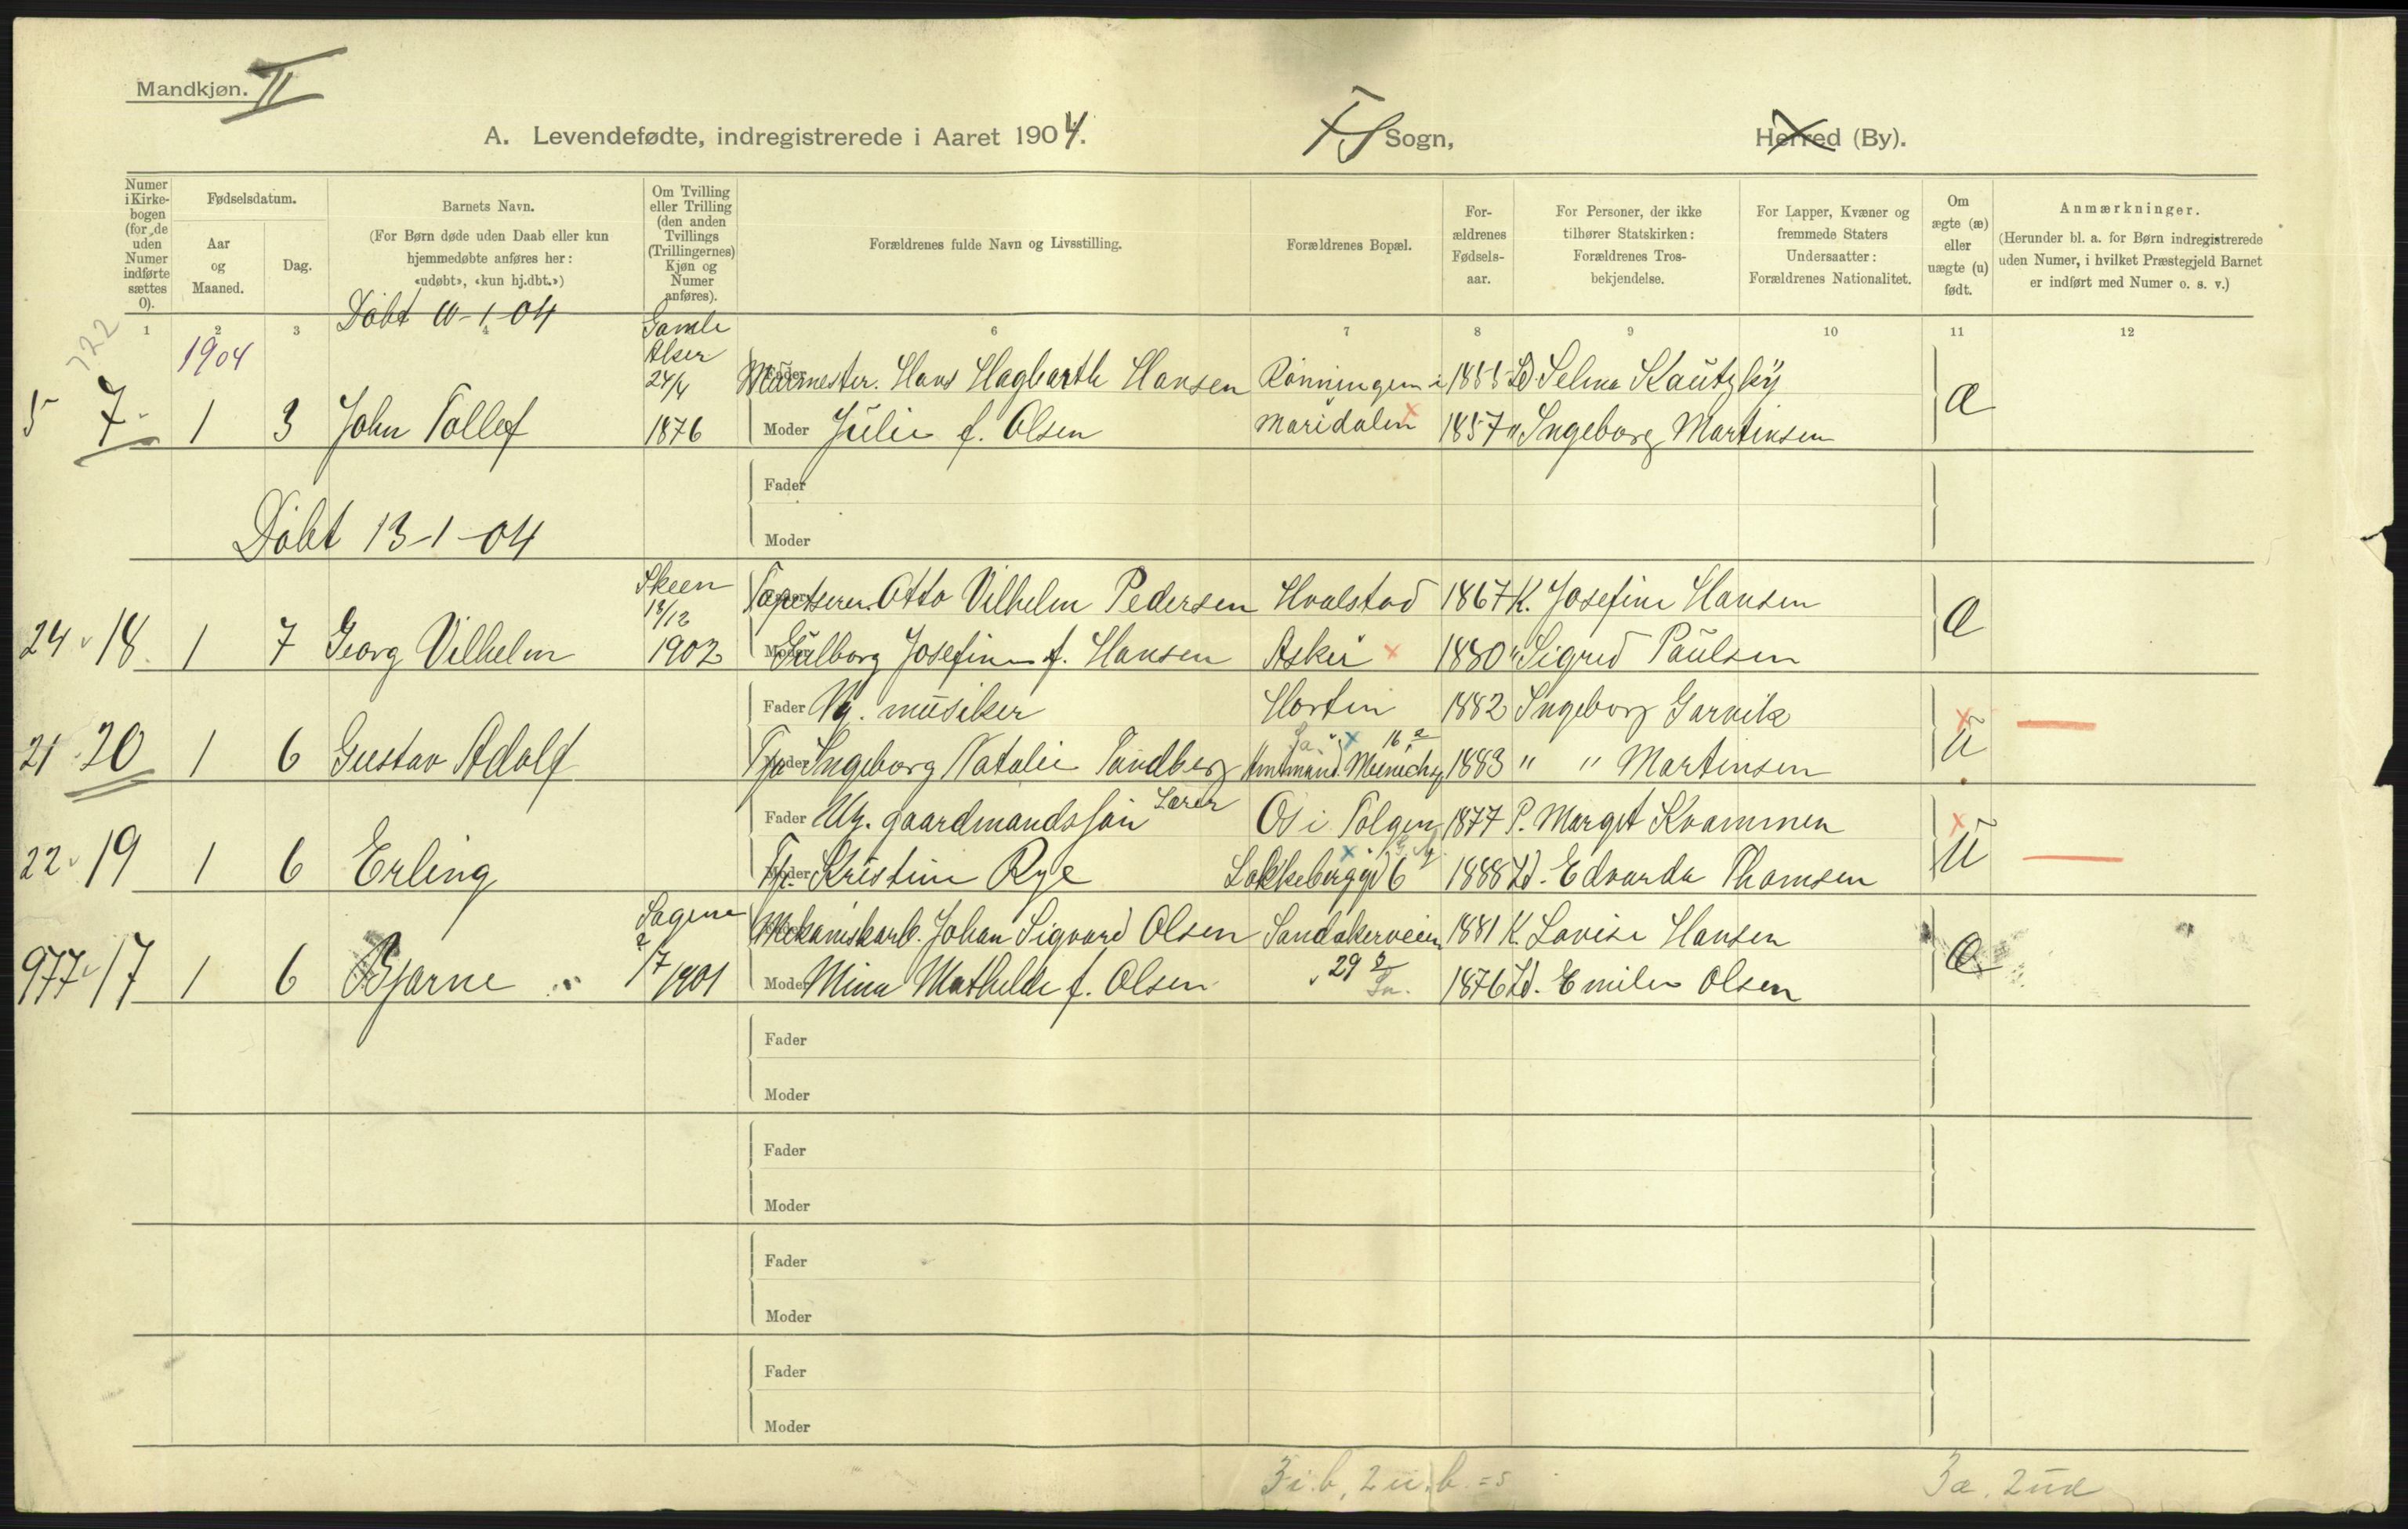 Mandkjøn. II
A. Levendefødte, indregistrerede i Aaret 1904.
FS Sogn,
Herred (By).
Numer i Kirkebogen (for de uden Numer indførte sættes 0).
Fødselsdatum.
Aar og Maaned.
Dag.
Barnets Navn.
(For Børn døde uden Daab eller kun hjemmedøbte anføres her: «udøbt», «kun hj.dbt.»)
Om Tvilling eller Trilling (den anden Tvillings (Trillingernes) Kjøn og Numer anføres).
Forældrenes fulde Navn og Livsstilling.
Forældrenes Bopæl.
Forældrenes Fødselsaar.
For Personer, der ikke tilhører Statskirken: Forældrenes Trosbekjendelse.
For Lapper, Kvæner og fremmede Staters Undersaatter: Forældrenes Nationalitet.
Om ægte (æ) eller uægte (u) født.
Anmærkninger.
(Herunder bl. a. for Børn indregistrerede uden Numer, i hvilket Præstegjeld Barnet er indført med Numer o. s. v.)
1 2 3 4 6 7 8 9 10 11 12
Døbt 10-1-04
122
1904
Gamle Aker 24/4
Fader Murmester. Hans Hagbarth Hansen Rønningen i 1855 Ld Selma Kautzky
5 7 1 3 John Tollef 1876 Moder Julie f. Olsen Maridalen 1857 " Ingeborg Martinsen æ
Fader
Moder
Døbt 13-1-04
Skeen 18/12
Fader Tapetserer. Otto Vilhelm Pedersen Hvalstad 1867 K. Josefine Hansen
24 18. 1 7 Georg Vilhelm 1902 Moder Gulborg Josefine f. Hansen Asker 1880 " Sigrid Paulsen æ
Fader Ug. musiker Horten 1882 Ingeborg Garvik
21 20 1 6 Gustav Adolf Moder Tje Ingeborg Natalie Tandberg Amtmand Meinichsg 16 1883 " " Martinsen u
Fader Ug. gaardmandssøn Lærer Os i Tolgen 1877 P. Margit Kvammen
22 19 1 6 Erling Moder Tje. Kristine Rye Løkkeberggd 6 1888 Ld. Edvarda Thomsen u
Sagene 2/7
Fader Mekaniskarb. Johan Sigvard Olsen Sandakerveien 1881 K. Lovise Hansen
977 17 1 6 Bjarne 1901 Moder Mina Mathilde f. Olsen 29 1876 Ld. Emilie Olsen æ
Fader
Moder
Fader
Moder
Fader
Moder
Fader
Moder
3 i.b, 2 u.b. = 5
3 æ. 2 uæ